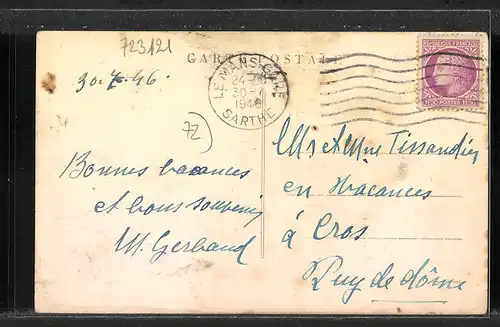 723121
CARTE POSTALE
30.7.46
LE MANS-GARE
30-7
1946
SARTHE
RÉPUBLIQUE FRANÇAISE
POSTES
72
Bonnes vacances
et bons souvenirs
M. Gerbaud
Mr et Mme Tissandier
en Vacances
à Cros
Puy de dôme